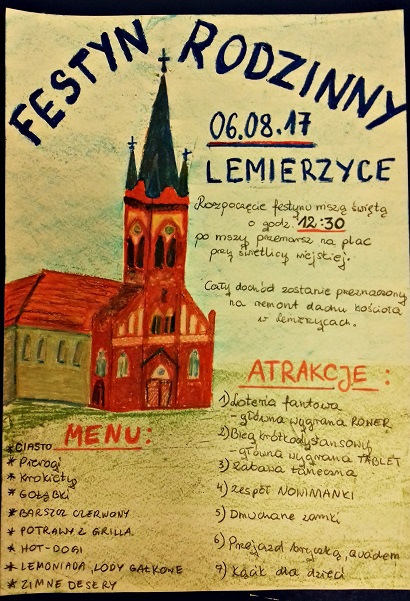 FESTYN RODZINNY
06.08.17
LEMIERZYCE
Rozpoczęcie festynu mszą świętą
o godz. 12:30
po mszy przemarsz na plac
przy świetlicy wiejskiej.
Cały dochód zostanie przeznaczony
na remont dachu kościoła
w Lemierzycach.
ATRAKCJE:
1) Loteria fantowa
- główna wygrana ROWER
2) Bieg krótkodystansowy
- główna wygrana TABLET
3) Zabawa taneczna
4) zespół NOWIMANKI
5) Dmuchane zamki
6) Przejazd bryczką, quadem
7) Kącik dla dzieci
MENU:
* CIASTO
* Pierogi
* Krokiety
* GOŁĄBKI
* BARSZCZ CZERWONY
* POTRAWY Z GRILLA
* HOT-DOGI
* LEMONIADA, LODY GAŁKOWE
* ZIMNE DESERY